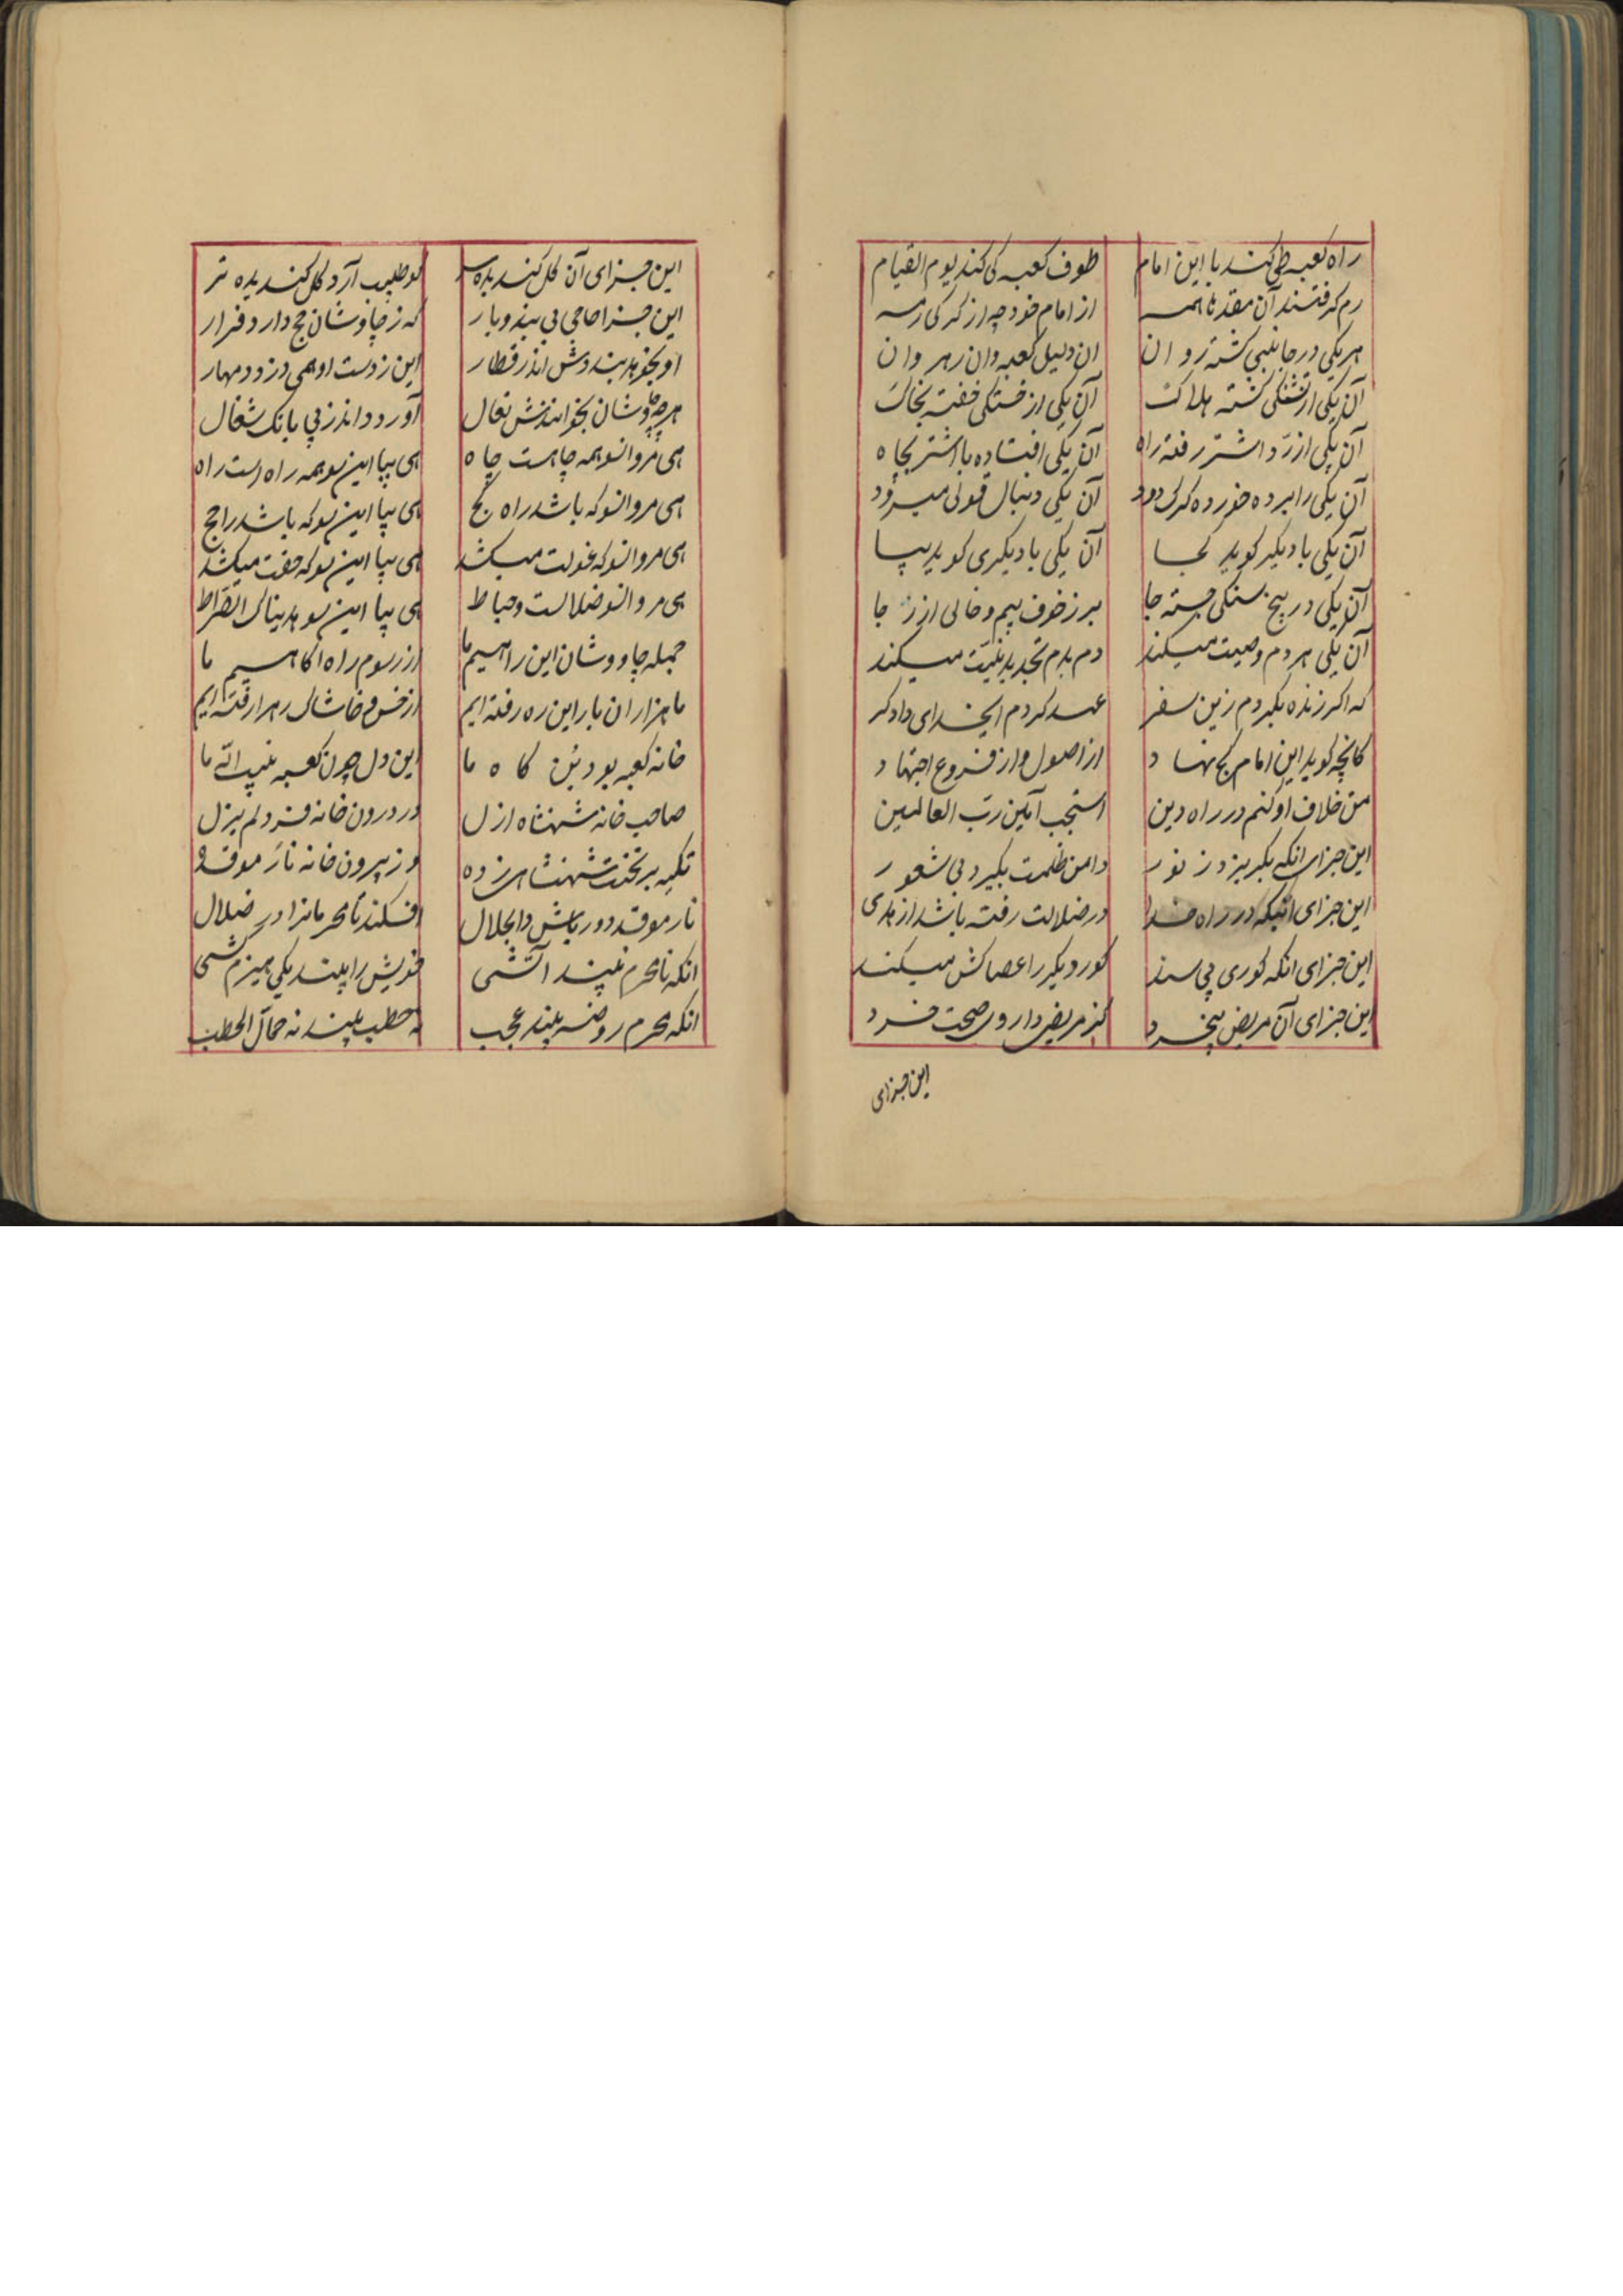 راه کعبه طی کند با این امام    طوف کعبه کی کند یوم القیام
رم گرفتند آن همه    از امام خود چه از گرگی رمه
هر یکی در جانبی گشته روان    آن دلیل کعبه وان رهروان
آن یکی از تشنگی گشته هلاک    آن یکی از خستگی خفته بخاک
آن یکی از رد اشتر رفته راه    آن یکی افتاده با اشتر بچاه
آن یکی را برده خورده گرگ و دد    آن یکی دنبال غولی میرود
آن یکی با دیگر گوید کجا    آن یکی با دیگری گوید بیا
آن یکی در بیخ سنگی جسته جا    پر ز خوف بیم و خالی از رجا
آن یکی هر دم وصیت میکند    دم بدم تجدید نیت میکند
که اگر زنده بگردم زین سفر    عهد کردم ایخدای دادگر
کانچه گوید این امام کج نهاد    از اصول و از فروع اجتهاد
من خلاف او کنم در راه دین    استجب آمین رب العالمین
این جزای آنکه بگریزد ز نور    دامن ظلمت بگیرد بی شعور
این جزای آنکه در راه خدا    در ضلالت رفته باشد از هدی
این جزای آنکه کوری پی سند    کور دیگر را عصاکش میکند
این جزای آن مریض بیخرد    کز مریض داروی صحت خرد
این جزای
این جزای آن گل گندیده سر    کو طبیب آرد گل گندیده تر
این جزا حاجی بی بند و بار    که ز چاوشان حج دارد فرار
او بخواهد بنددش اندر قطار    این ز دست او همی دزدد مهار
هر چه چاوشان بخوانندش تعال    آورد اندر پی بانک شغال
هی مرو انسو همه چاهست چاه    هی بیا این سو همه راه است راه
هی مرو انسو که باشد راه کج    هی بیا این سو که باشد راه حج
هی مرو انسو که غولت میکشد    هی بیا این سو که حقت میکشد
هی مرو انسو ضلالست و حباط    هی بیا این سو هدیناک الصراط
جمله چاووشان این راهیم ما    از رسوم راه آگاهیم ما
ما هزاران بار این ره رفته ایم    از خس و خاشاک رهرا رفته ایم
خانه کعبه بود بن گاه ما    این دل چون کعبه بیت الله ما
صاحب خانه شهنشاه ازل    در درون خانه فرد لم یزل
تکیه بر تخت شهنشاهی زده    وز بیرون خانه نار موقده
نار موقد دور باش ذالجلال    افکند نامحرمانرا در ضلال
انکه نامحرم نبیند آتشی    خویش را بیند یکی هیزم کشی
انکه محرم روضه بیند عجب    نه حطب بیند نه حمال الحطب